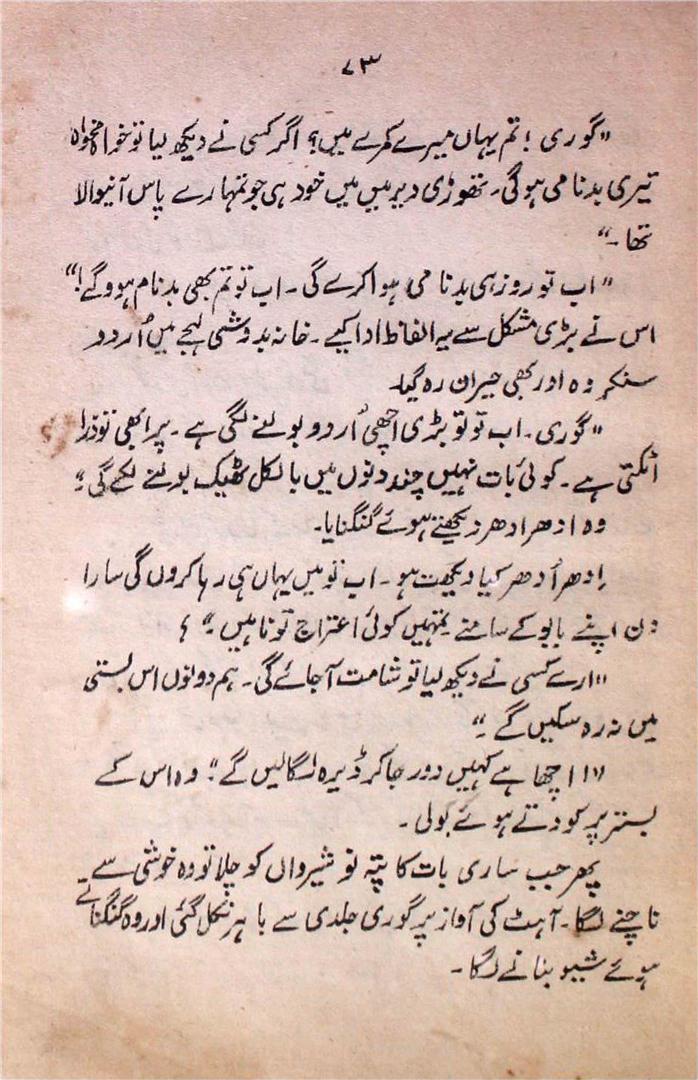 ۷۳
"گوری! تم یہاں میرے کمرے میں؟ اگر کسی نے دیکھ لیا تو خواہ مخواہ
تیری بدنامی ہوگی۔ تھوڑی دیر میں میں خود ہی جو تمہارے پاس آنیوالا
تھا۔"
"اب تو روز ہی بدنامی ہوا کرے گی۔ اب تو تم بھی بدنام ہووگے!"
اس نے بڑی مشکل سے یہ الفاظ ادا کیے۔ خانہ بدوشی لہجے میں اُردو
سنکر وہ اور بھی حیران رہ گیا۔
"گوری۔ اب تو تو بڑی اچھی اُردو بولنے لگی ہے۔ پر ابھی تو ذرا
اٹکتی ہے۔ کوئی بات نہیں چند دنوں میں بالکل ٹھیک بولنے لگے گی۔"
وہ ادھر ادھر دیکھتے ہوئے گنگنایا۔
اِدھر اُدھر کیا دیکھت ہو۔ اب تو میں یہاں ہی رہا کروں گی سارا
دن اپنے بابو کے سامنے۔ تمہیں کوئی اعتراج تو ناہیں۔" ؟
"ارے کسی نے دیکھ لیا تو شامت آجائے گی۔ ہم دونوں اس بستی
میں نہ رہ سکیں گے۔"
"ا اچھا ہے کہیں دور جاکر ڈیرہ لگالیں گے" وہ اس کے
بستر پر کودتے ہوئے بولی۔
پھر جب ساری بات کا پتہ نوشیرواں کو چلا تو وہ خوشی سے
ناچنے لگا۔ آہٹ کی آواز پر گوری جلدی سے باہر نکل گئی اور وہ گنگناتے
ہوئے شیو بنانے لگا۔